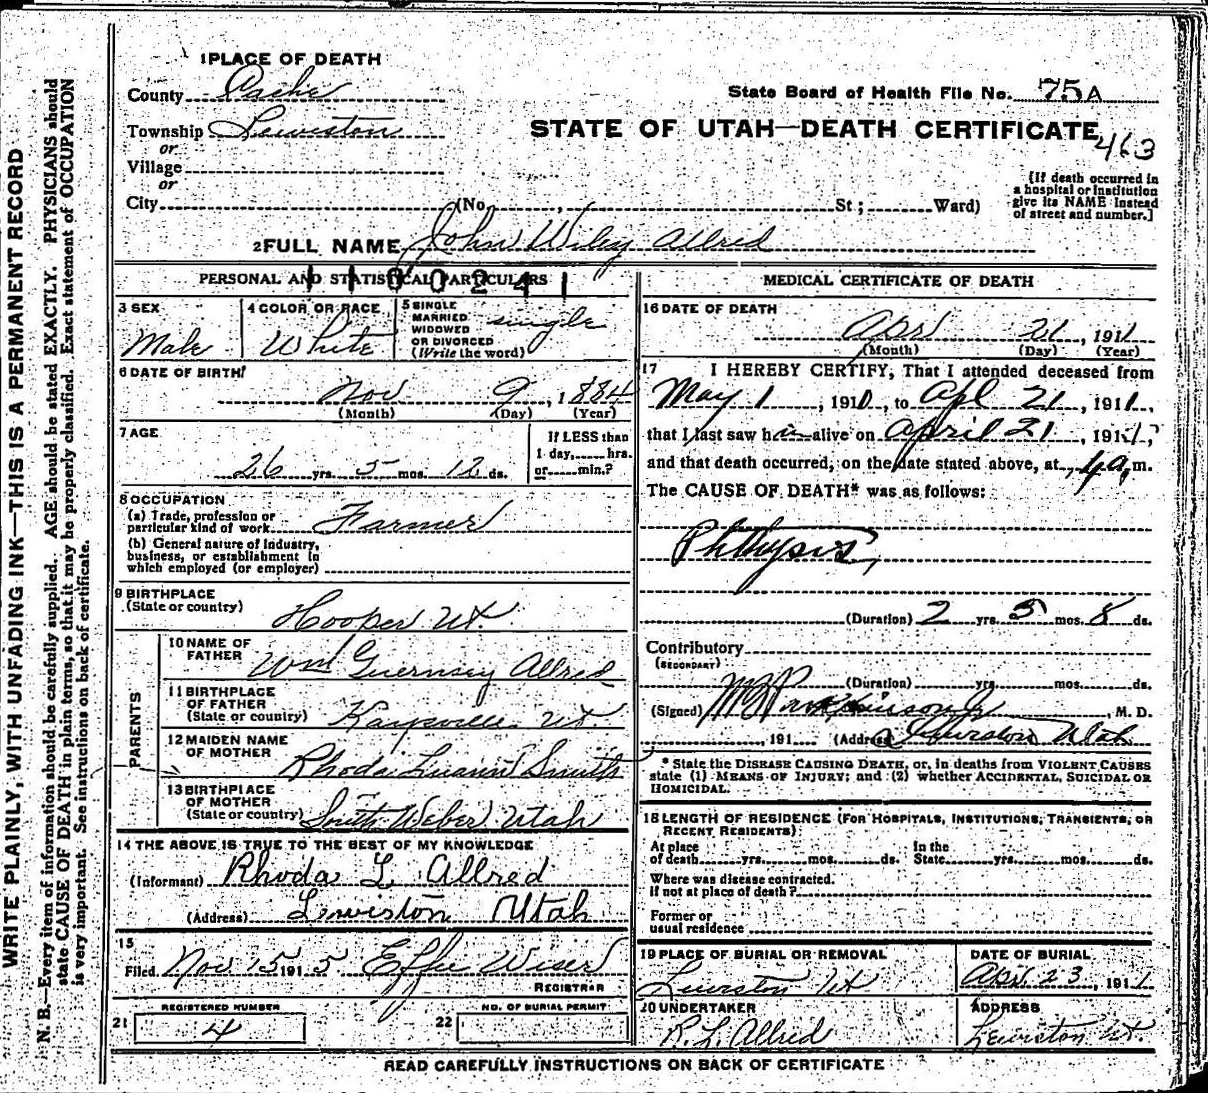 WRITE PLAINLY, WITH UNFADING INK—THIS IS A PERMANENT RECORD
N. B.—Every item of information should be carefully supplied. AGE should be stated EXACTLY. PHYSICIANS should
state CAUSE OF DEATH in plain terms, so that it may be properly classified. Exact statement of OCCUPATION
is very important. See instructions on back of certificate.
1 PLACE OF DEATH
County Cache
State Board of Health File No. 75A
Township Lewiston
STATE OF UTAH—DEATH CERTIFICATE
463
or
Village
or
City (No. , St; Ward)
(If death occurred in
a hospital or institution
give its NAME instead
of street and number.]
2 FULL NAME John Wiley Allred
PERSONAL AND STATISTICAL PARTICULARS
1100241
3 SEX
Male
4 COLOR OR RACE
White
5 SINGLE
MARRIED
WIDOWED
OR DIVORCED
(Write the word)
single
6 DATE OF BIRTH
Nov 9, 1884
(Month) (Day) (Year)
7 AGE
26 yrs. 5 mos. 12 ds.
If LESS than
1 day, hrs.
or min.?
8 OCCUPATION
(a) Trade, profession or
particular kind of work Farmer
(b) General nature of industry,
business, or establishment in
which employed (or employer)
9 BIRTHPLACE
(State or country)
Hooper Ut.
PARENTS
10 NAME OF
FATHER
Wm Guernsey Allred
11 BIRTHPLACE
OF FATHER
(State or country) Kaysville Ut
12 MAIDEN NAME
OF MOTHER
Rhoda Luann Smith
13 BIRTHPLACE
OF MOTHER
(State or country) South Weber Utah
14 THE ABOVE IS TRUE TO THE BEST OF MY KNOWLEDGE
(Informant) Rhoda L. Allred
(Address) Lewiston Utah
15
Filed Nov 15 1915 Effie Wiser
REGISTRAR
REGISTERED NUMBER
21 4
NO. OF BURIAL PERMIT
22
MEDICAL CERTIFICATE OF DEATH
16 DATE OF DEATH
Apr 21, 1911
(Month) (Day) (Year)
17 I HEREBY CERTIFY, That I attended deceased from
May 1, 1910, to Apl 21, 1911,
that I last saw him alive on April 21, 1911,
and that death occurred, on the date stated above, at 4 a m.
The CAUSE OF DEATH* was as follows:
Phthysis,
(Duration) 2 yrs. 5 mos. 8 ds.
Contributory
(SECONDARY)
(Duration) yrs. mos. ds.
(Signed) W B Parkinson Jr, M. D.
, 191 (Address) Lewiston Utah
* State the DISEASE CAUSING DEATH, or, in deaths from VIOLENT CAUSES
state (1) MEANS OF INJURY; and (2) whether ACCIDENTAL, SUICIDAL OR
HOMICIDAL.
18 LENGTH OF RESIDENCE (FOR HOSPITALS, INSTITUTIONS, TRANSIENTS, OR
RECENT RESIDENTS)
At place
of death yrs. mos. ds.
In the
State yrs. mos. ds.
Where was disease contracted.
if not at place of death?
Former or
usual residence
19 PLACE OF BURIAL OR REMOVAL
Lewiston Ut
DATE OF BURIAL
Apr. 23, 1911
20 UNDERTAKER
R. L. Allred
ADDRESS
Lewiston Ut.
READ CAREFULLY INSTRUCTIONS ON BACK OF CERTIFICATE